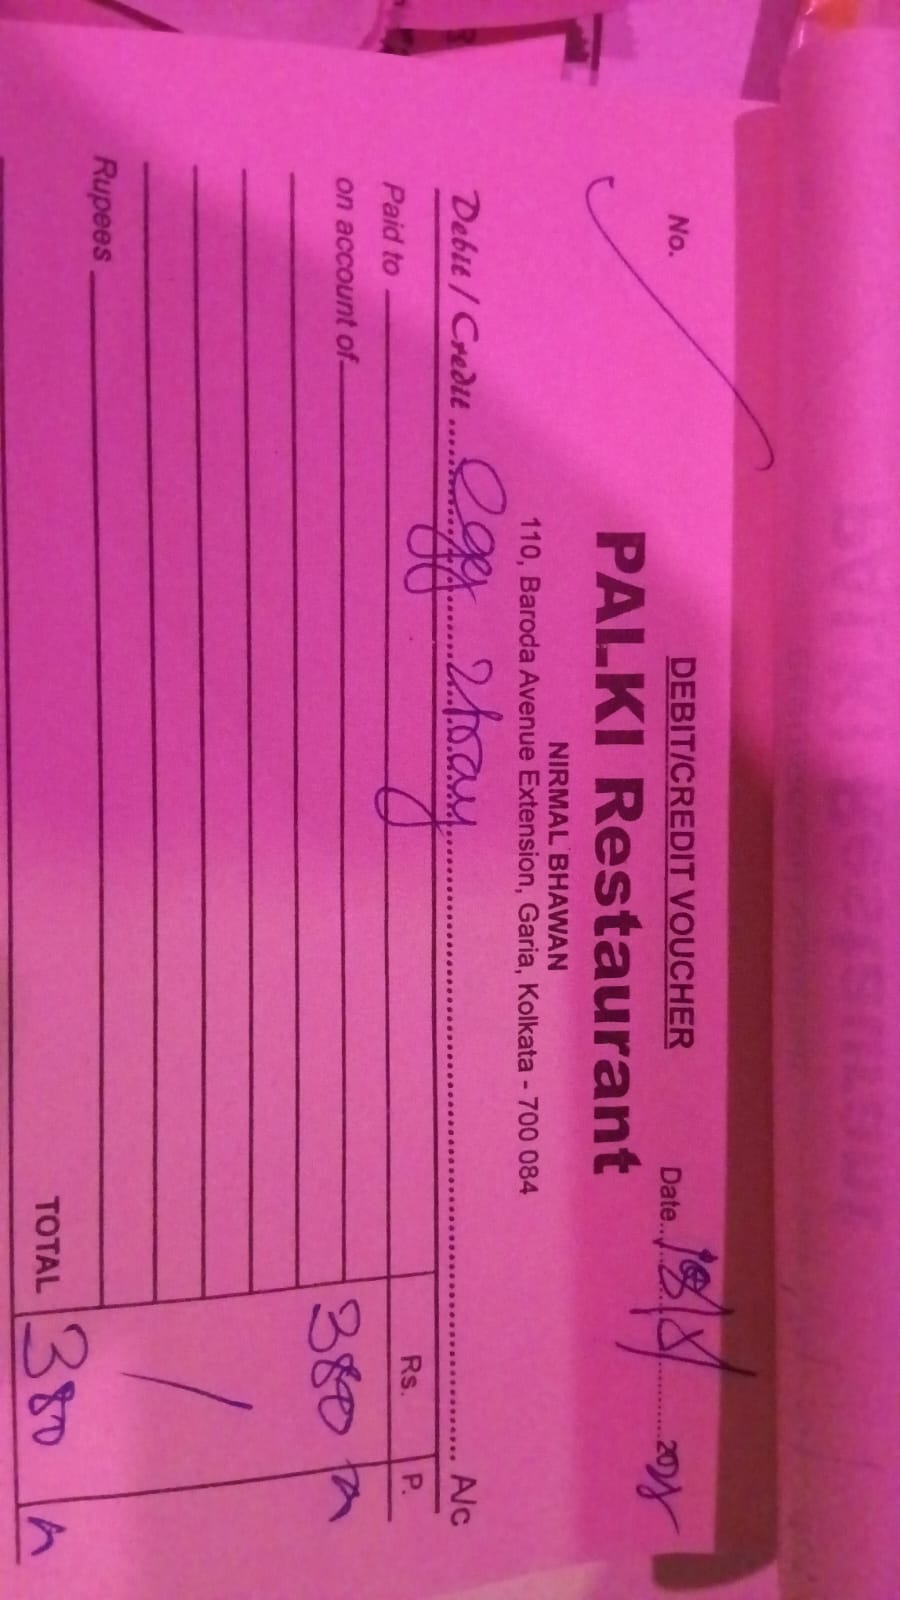 DEBIT/CREDIT VOUCHER
No. Date
PALKI Restaurant
NIRMAL BHAWAN
110, Baroda Avenue Extension, Garia, Kolkata - 700 084
Debit / Credit Eggs 2 tray A/c
Paid to Rs. P.
on account of 380
Rupees
TOTAL 380